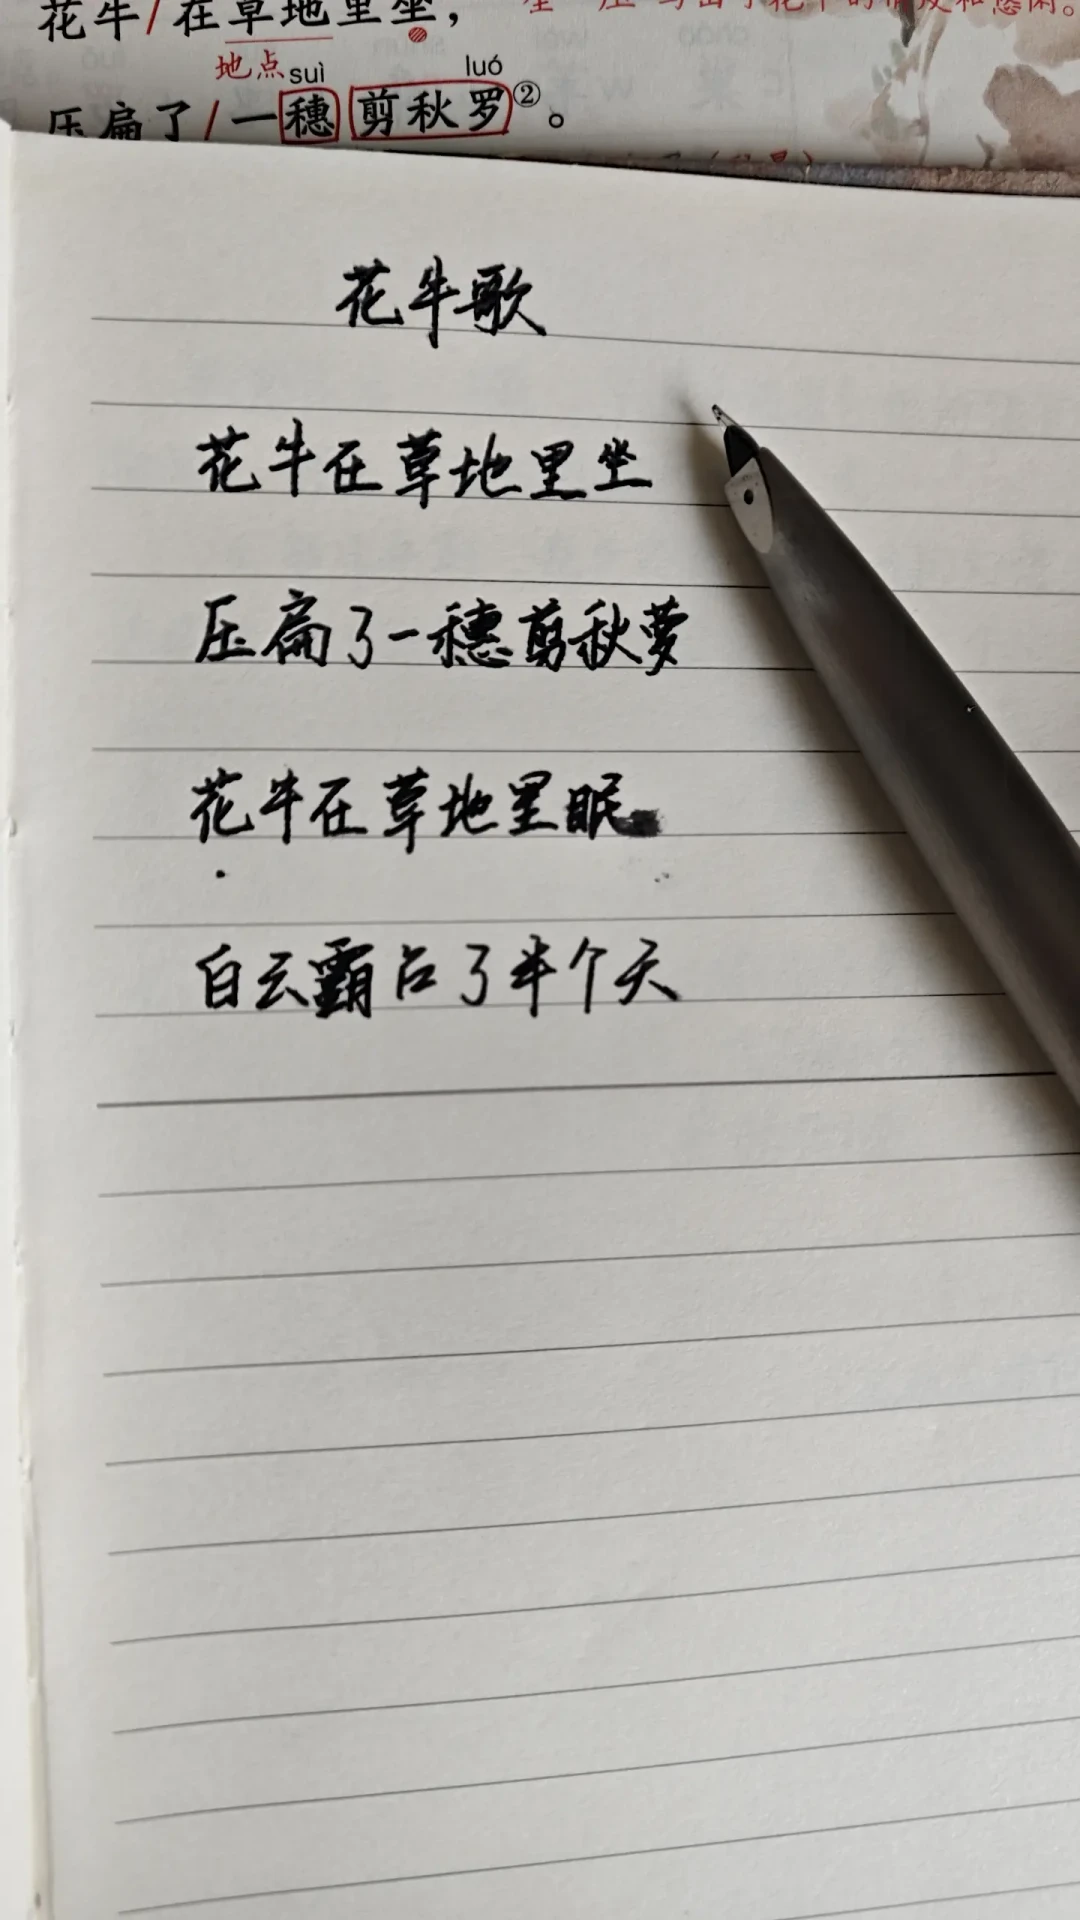 花牛/在草地里坐，
地点 suì luó
压扁了/一穗剪秋罗②。
花牛歌
花牛在草地里坐
压扁了一穗剪秋萝
花牛在草地里眠
白云霸占了半个天